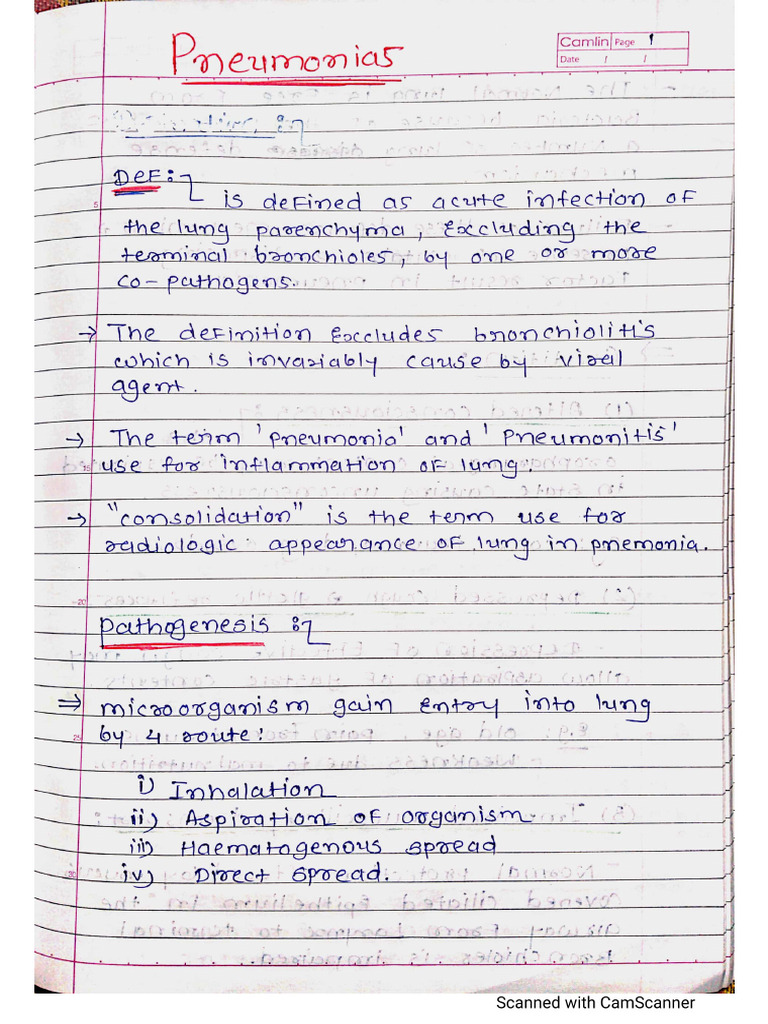 Pneumonias
Camlin Page 1
Date / /
DEF:-
is defined as acute infection of
5
the lung parenchyma, Excluding the
terminal bronchioles, by one or more
co-pathogens.
→ The definition Excludes bronchiolitis
which is invariably cause by viral
agent.
→ The term 'pneumonia' and 'Pneumonitis'
15 use for inflammation of lung.
→ "consolidation" is the term use for
radiologic appearance of lung in pnemonia.
20
Pathogenesis :-
⇒ microorganism gain Entry into lung
25 by 4 route:
i) Inhalation
ii) Aspiration of organism
iii) Haematogenous spread
iv) Direct spread.
Scanned with CamScanner